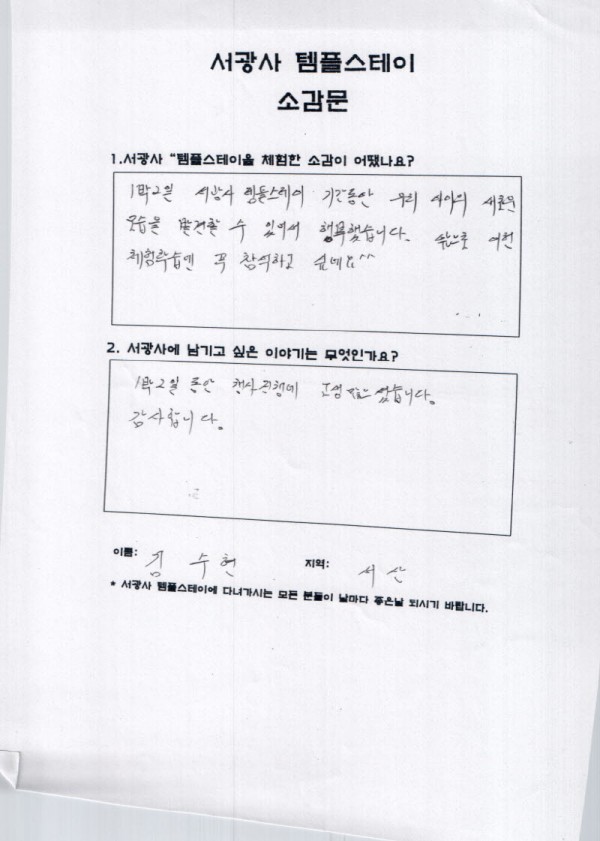 서광사 템플스테이
소감문
1.서광사 "템플스테이을 체험한 소감이 어땠나요?
1박2일 서광사 템플스테이 기간동안 우리 새로운
모습을 발견할 수 있어서 행복했습니다. 앞으로 이런
체험학습엔 꼭 참석하고 싶네요^^
2. 서광사에 남기고 싶은 이야기는 무엇인가요?
1박2일 동안 행사진행에 고생 많으셨습니다.
감사합니다.
이름: 김수현 지역: 서산
* 서광사 템플스테이에 다녀가시는 모든 분들이 날마다 좋은날 되시기 바랍니다.